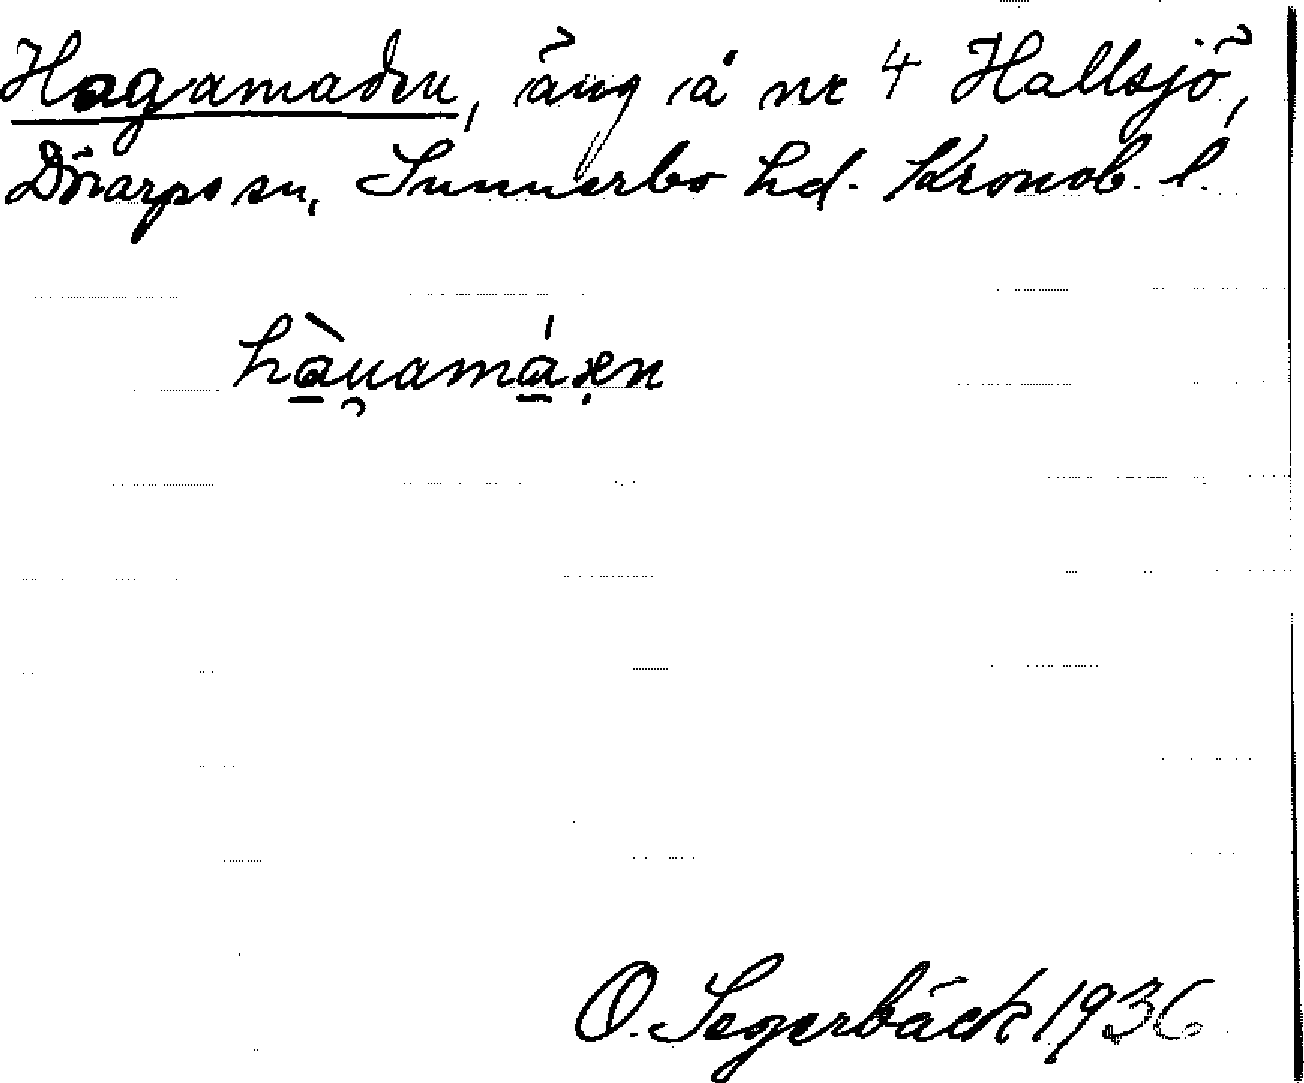 Hagamaden, äng å nr 4 Hallsjö,
Dörarps sn, Sunnerbo hd. Kronob. l.
O. Segerbäck 1936